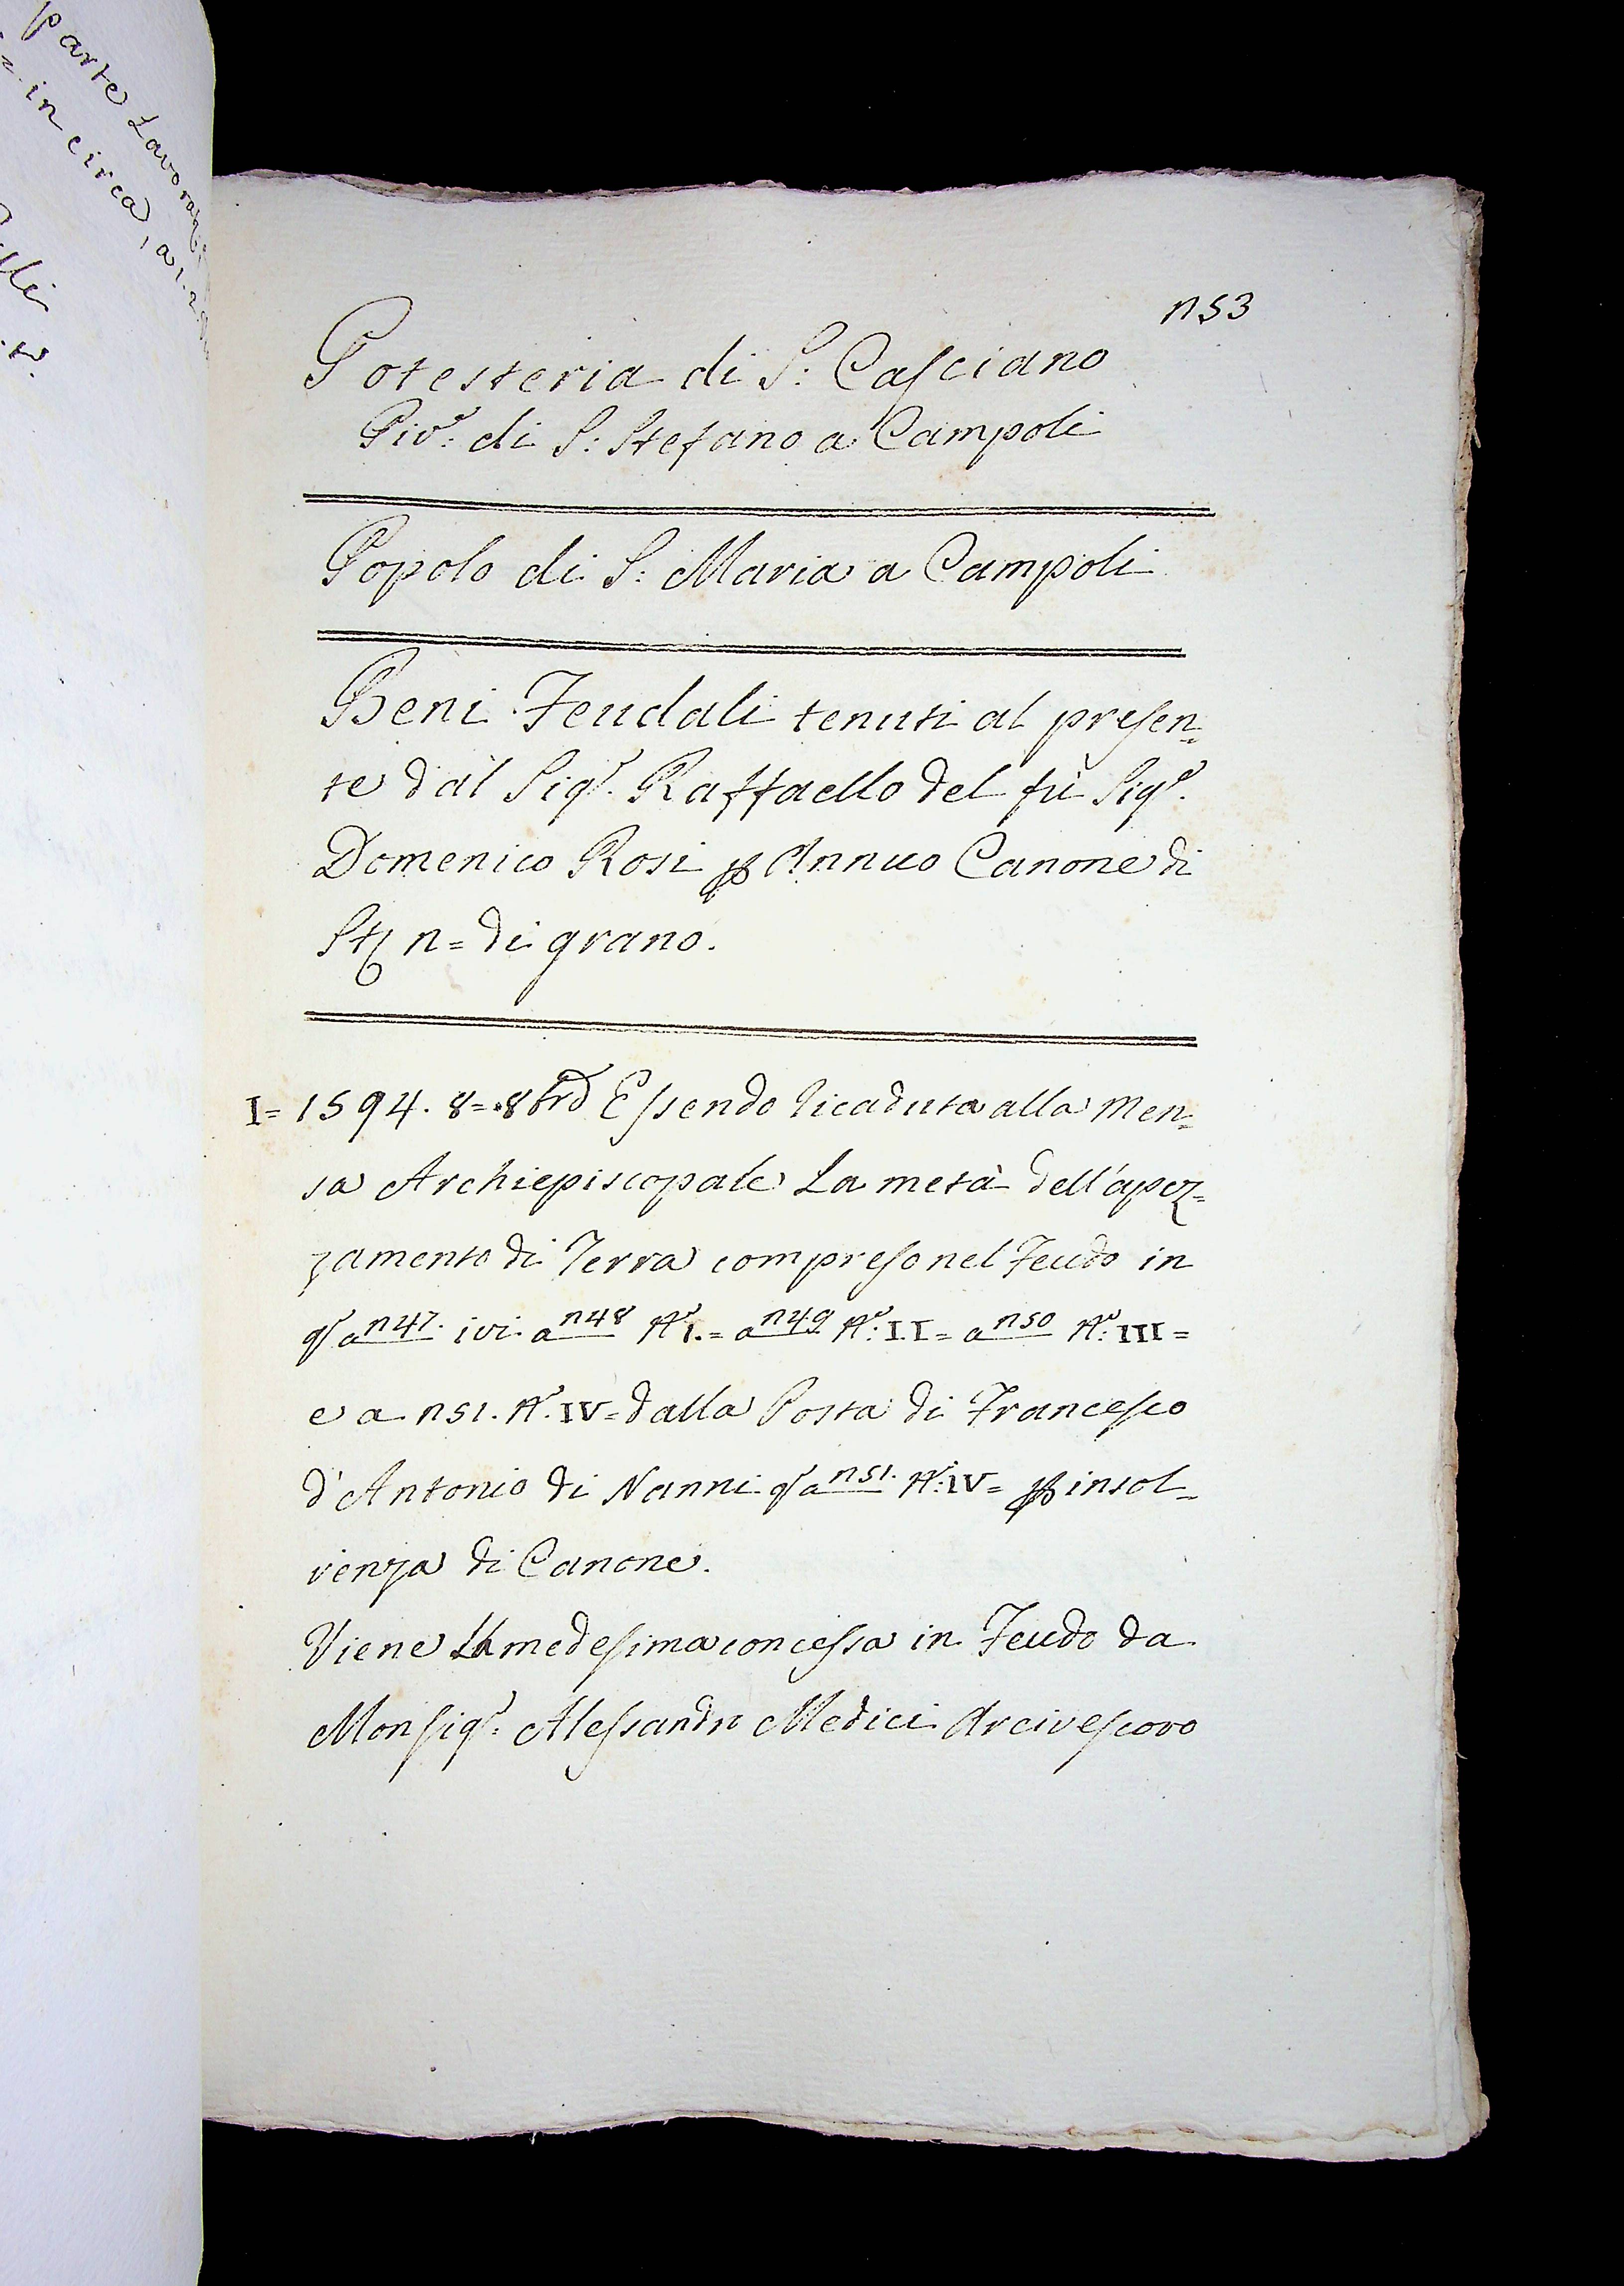 parte Lavorat
in circa, a 1.2.
n53
Potesteria di S: Casciano
Piv.e di S: Stefano a Campoli
Popolo di S: Maria a Campoli
Beni Feudali tenuti al presen=
te dal Sig.r Raffaello del fù Sig.r
Domenico Rosi p Annuo Canone di
Sta n= di grano.
I= 1594. 8= 8bre Essendo Ricaduta alla Men=
sa Archiepiscopale La metà dell'apez=
zamento di Terra compreso nel Feudo in
q.o a n47. ivi a n48 N.o I.= a n49 N.o: II= a n50 N.o: III=
e a n51. N.o IV= dalla Posta di Francesco
d'Antonio di Nanni q.o a n51. N.o: IV= p insol=
venza di Canone.
Viene La medesima concessa in Feudo da
Monsig.r Alessandro Medici Arcivescovo